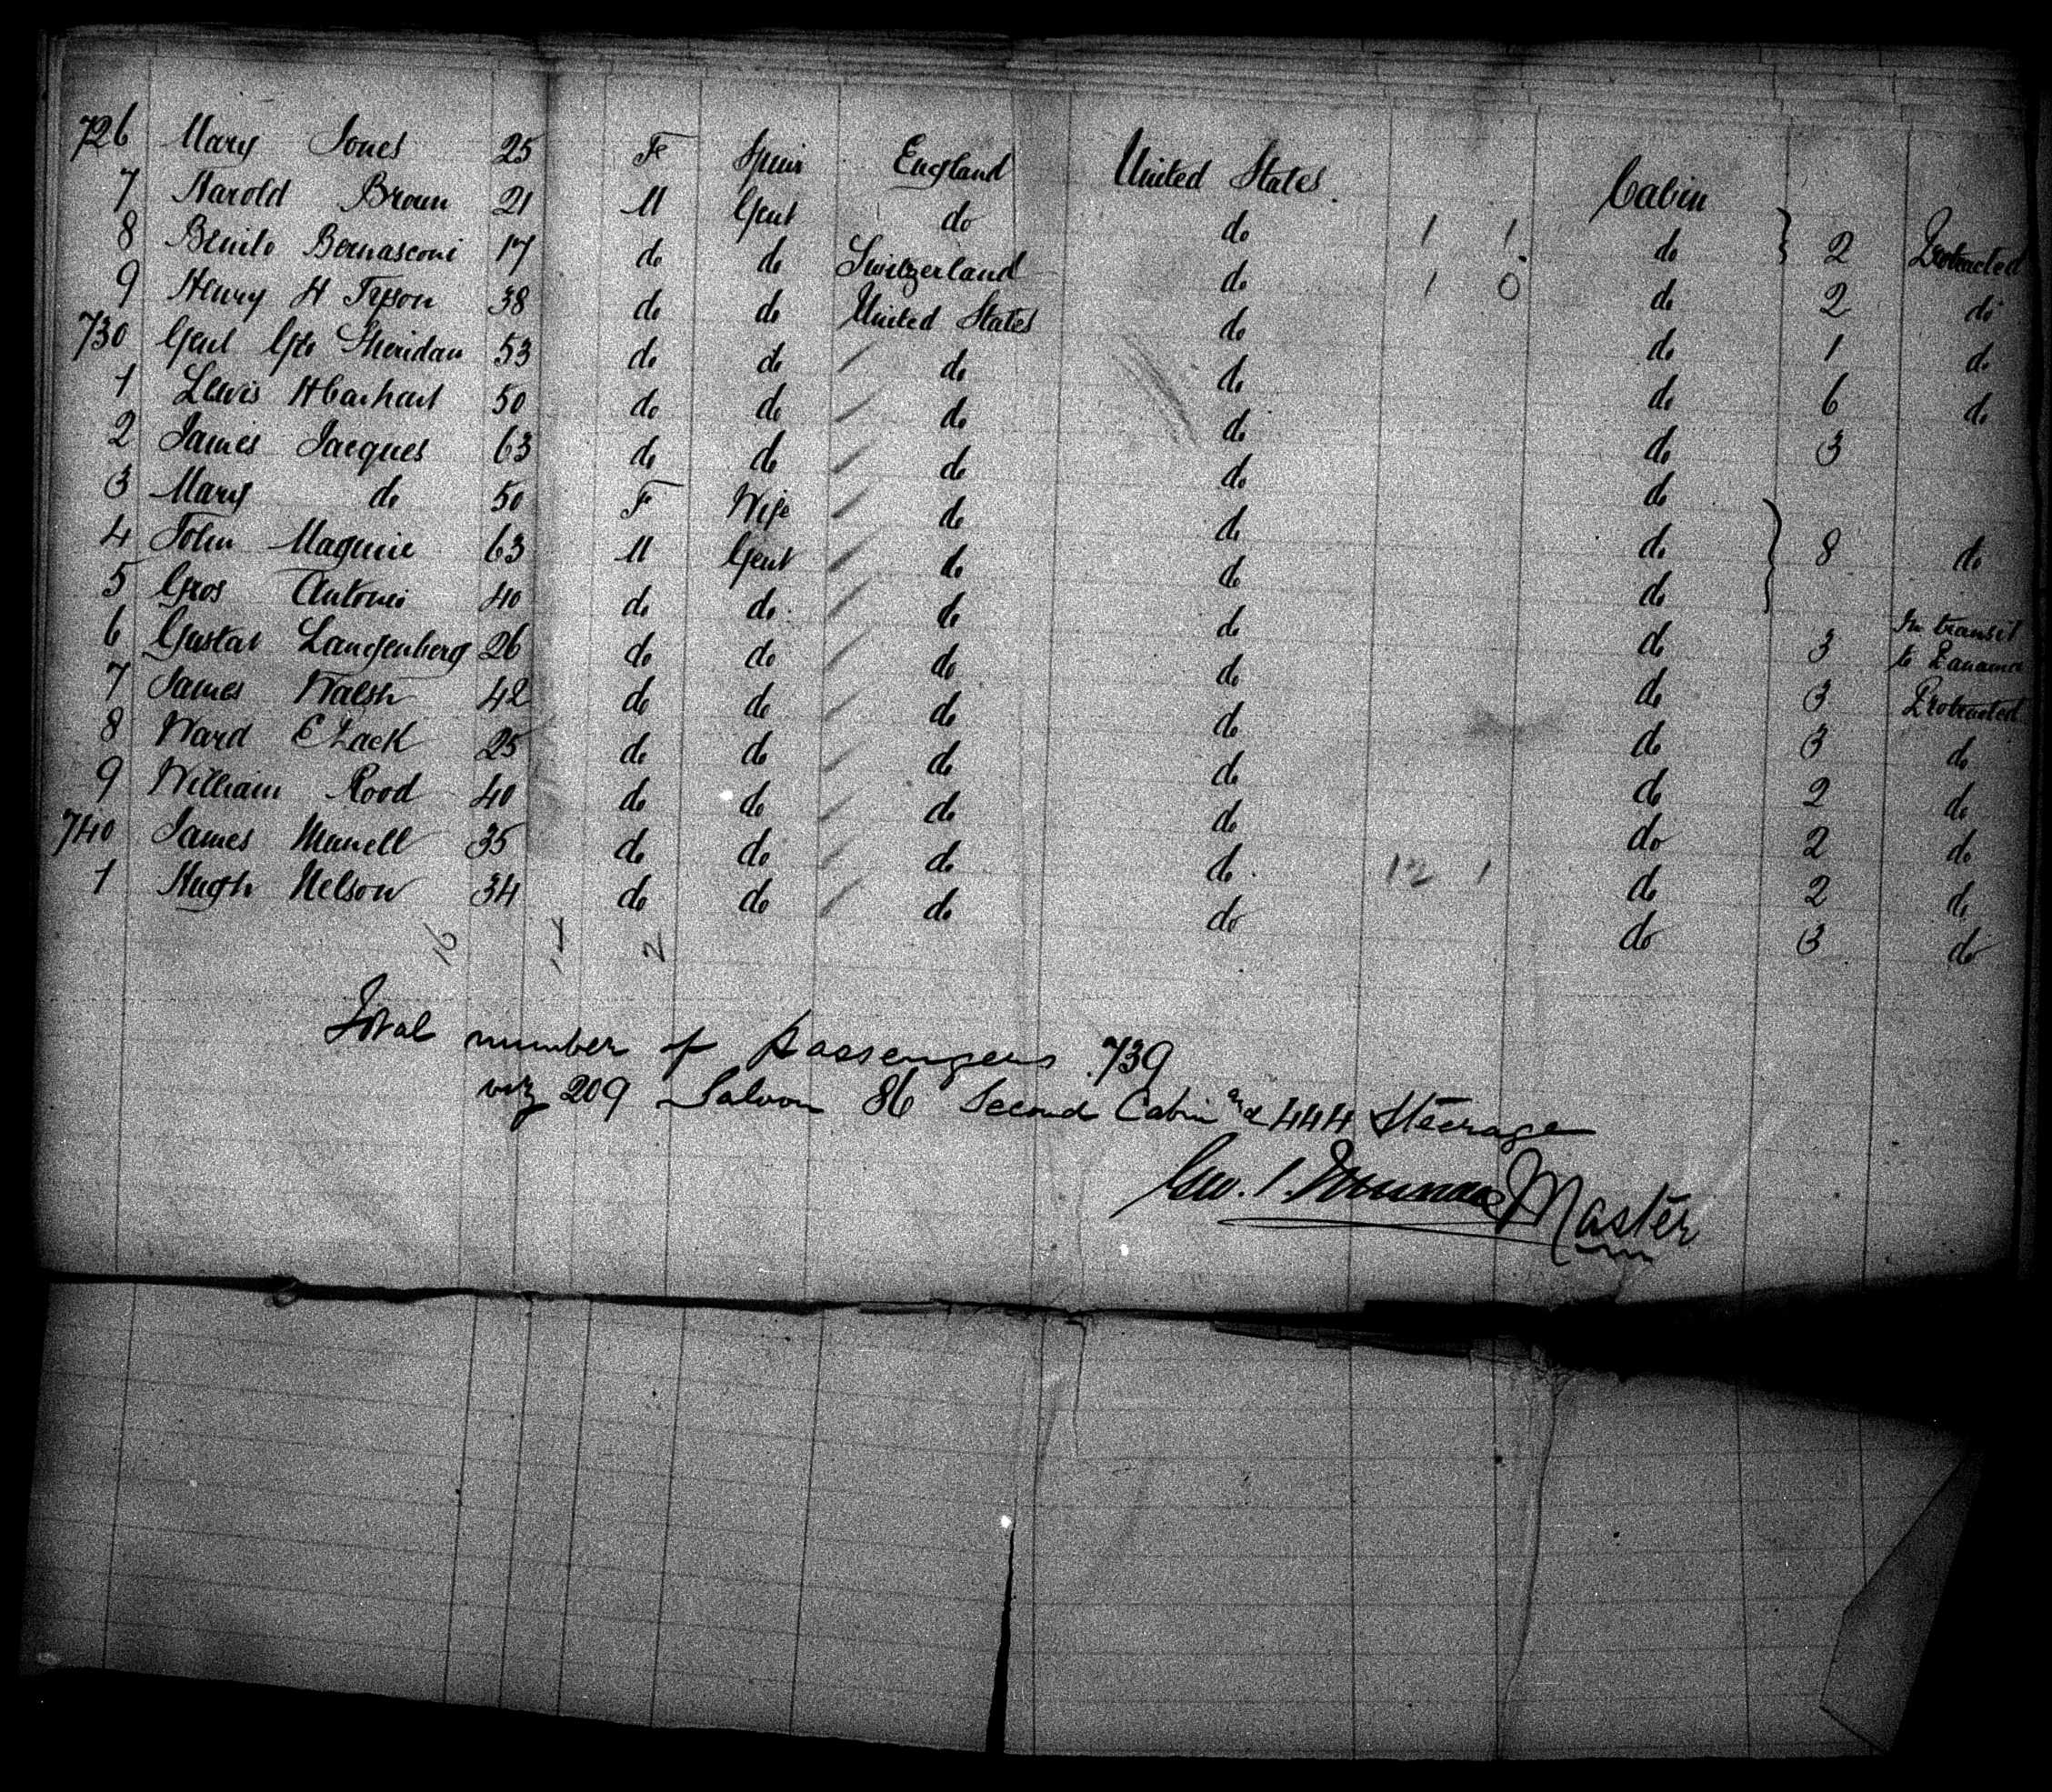 726 Mary Jones 25 Fe Spin England United States Cabin
7 Harold Brown 21 M Gent do do 1 1 do } 2 Protracted
8 Benito Bernasconi 17 do do Switzerland do 1 0 do 2 do
9 Henry H Tyson 38 do do United States do do 1 do
730 Genl Geo Sheridan 53 do do do do do 6 do
1 Lewis 50 do do do do do 3
2 James Jacques 63 do do do do do
3 Mary do 50 Fe Wife do do do } 8 do
4 John Maguire 63 M Gent do do do
5 Gros Antonio 40 do do do do do 3 In transit to Panama
6 Gustav Langenberg 26 do do do do do 3 Protracted
7 James Walsh 42 do do do do do 3 do
8 Ward 25 do do do do do 2 do
9 William Rood 40 do do do do do 2 do
740 James 35 do do do do 12 1 do 2 do
1 Hugh Nelson 34 do do do do do 3 do
16 14 2
Total number of Passengers 739
viz 209 Saloon 86 Second Cabin and 444 Steerage
Geo. Master